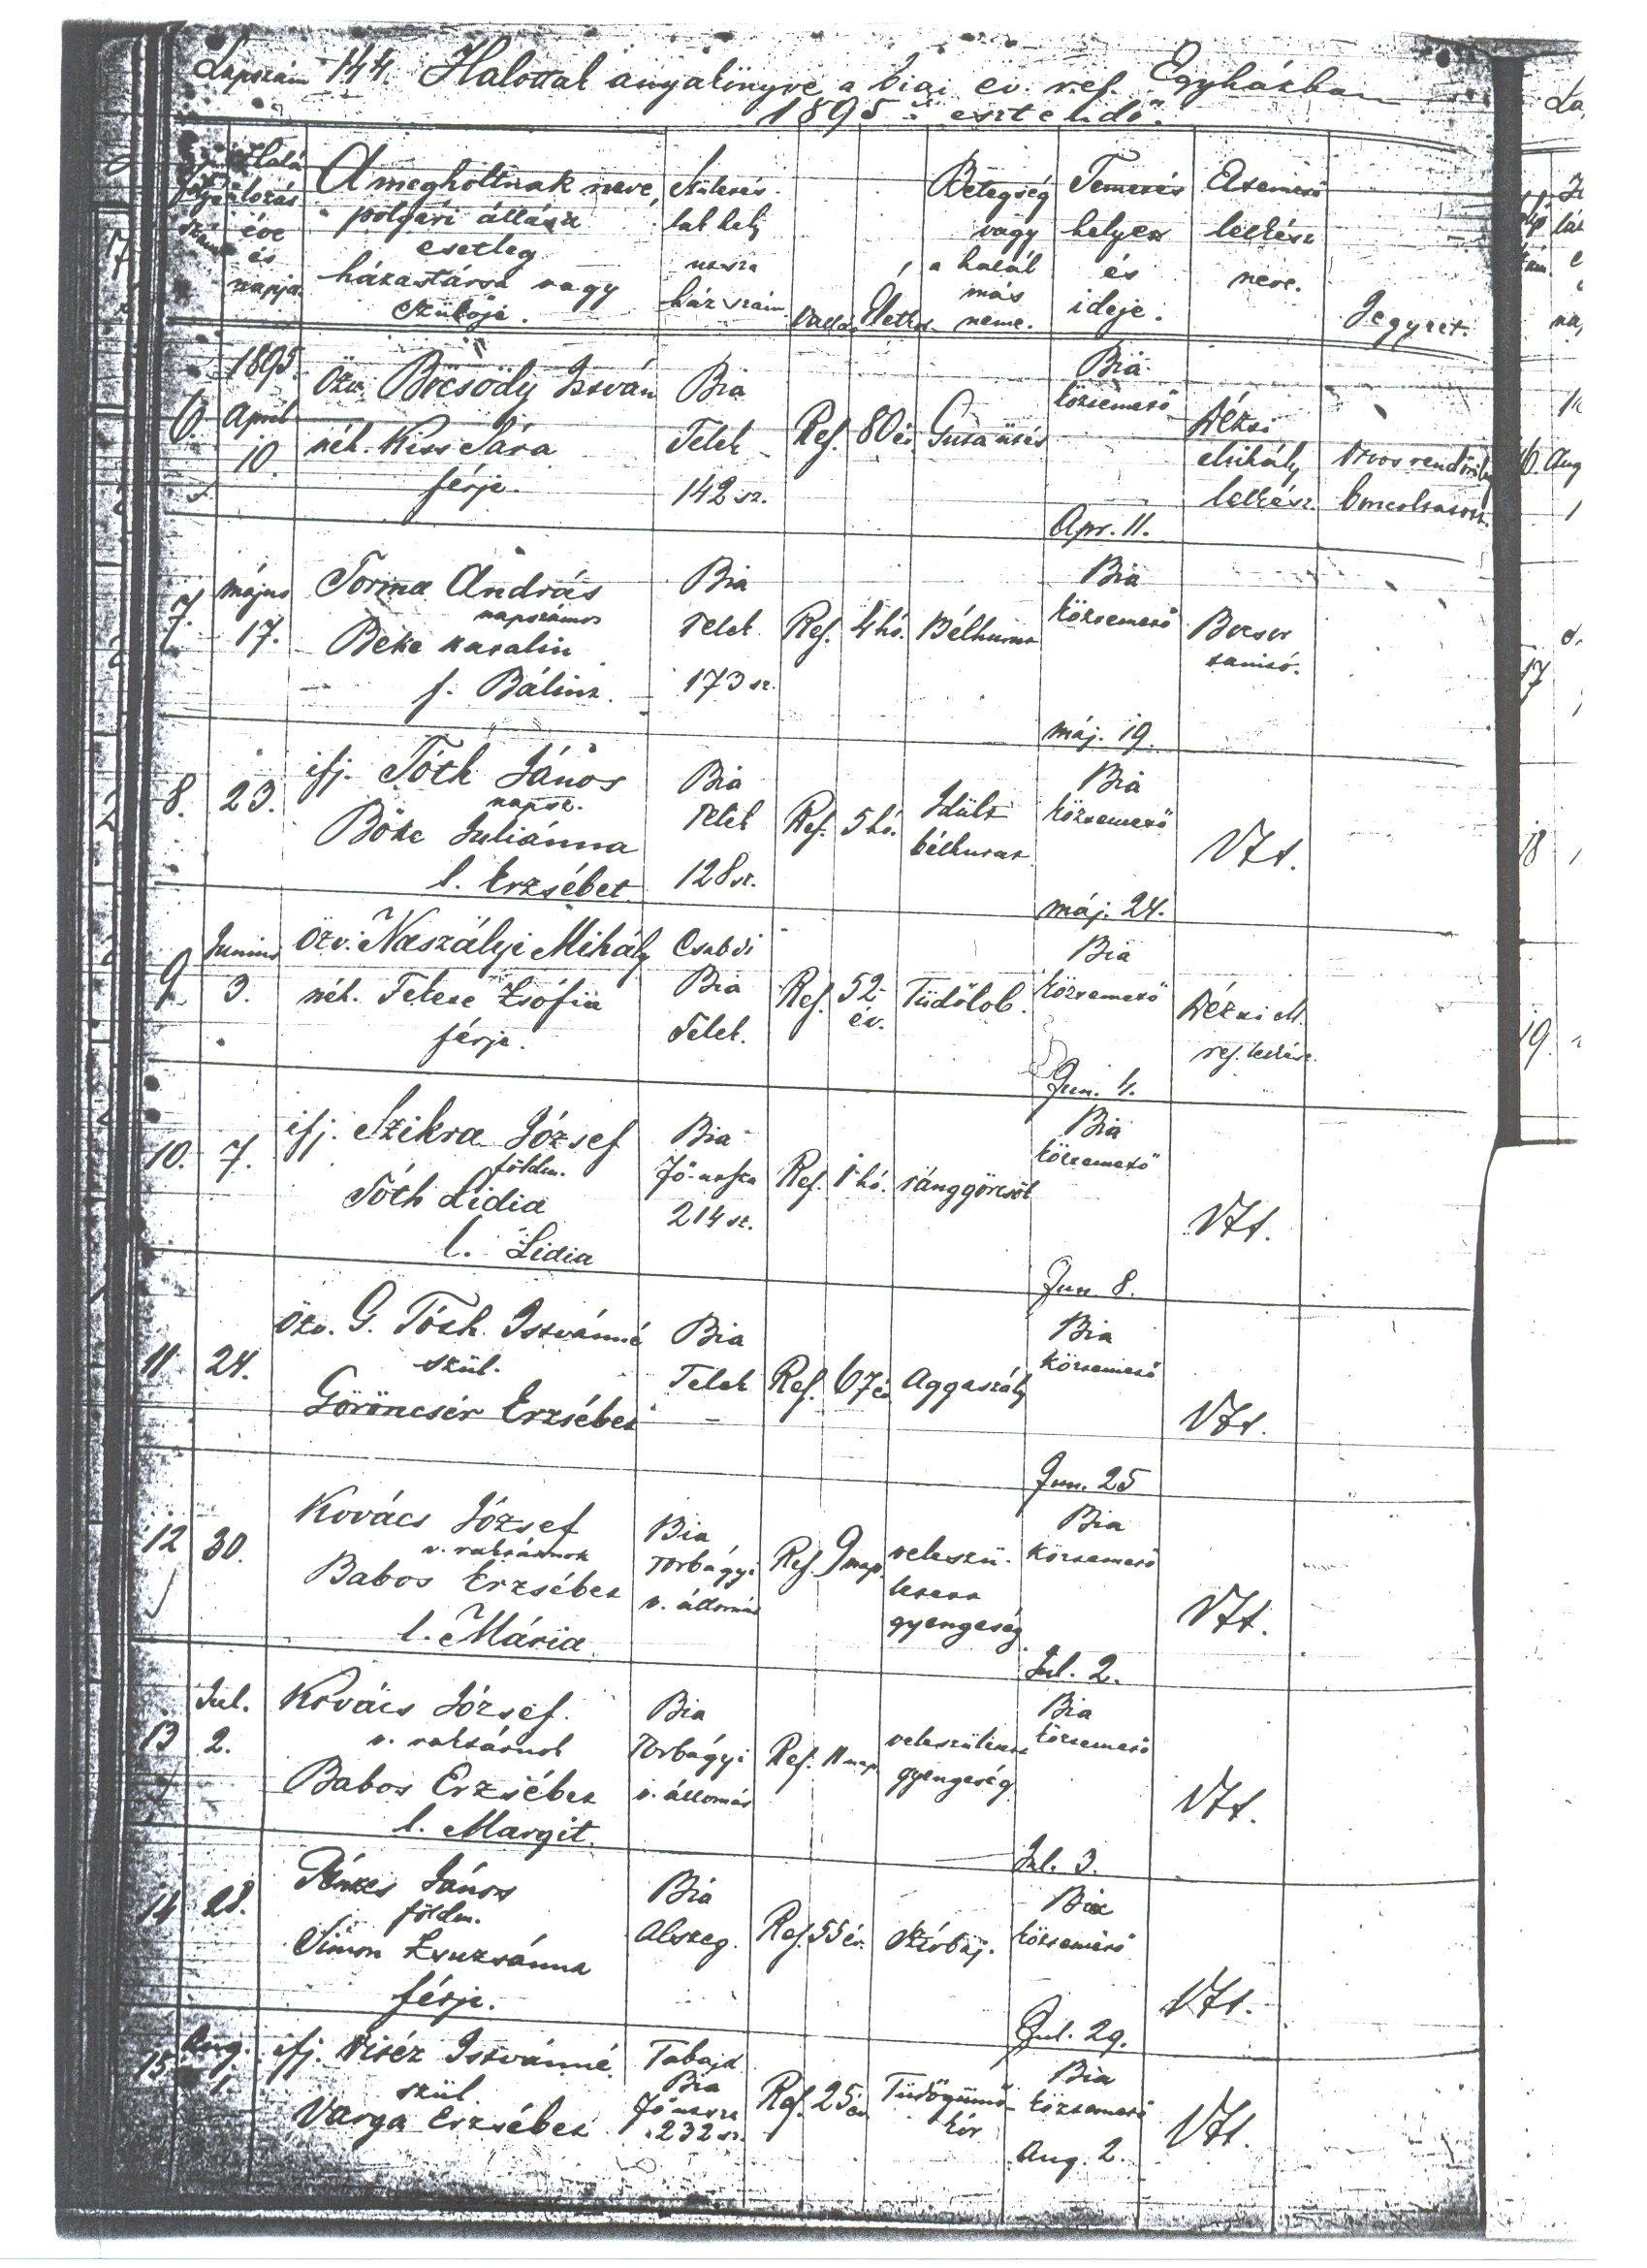 Lapszám 144. Halottak anyakönyve a biai ev. ref. Egyházban
1895-ik esztendő.
Folyó szám
Halálozás éve és napja.
A megholtnak neve,
polgári állása
esetleg
házastársa vagy
szülője.
Születés
lak hely
utsza
ház szám
Vallás
Életkor
Betegség
vagy
a halál
más
neme.
Temetés
helye
és
ideje.
Eltemető
lelkész
neve.
Jegyzet.
6. 1895. April 10.
Özv. Bocsody István
néh. Kiss Sára
férje.
Bia
Telek
142 sz.
Ref. 80 év Gutaütés
Bia
köztemető
Apr. 11.
Dézsi
Mihály
lelkész.
Orvosrendőrileg
boncoltatott.
7. május 17.
Torma András
napszámos
Béke Katalin
f. Bálint.
Bia
Telek
173 sz.
Ref. 4 hó. Bélhurut
Bia
köztemető
máj. 19.
Bocsor
tanító.
8. 23.
ifj. Tóth János
napsz.
Böke Juliánna
l. Erzsébet.
Bia
Telek
128 sz.
Ref. 5 hó. Idült
bélhurut
Bia
köztemető
máj. 24.
9. Junius 3.
Özv. Naszályi Mihály
néh. Fekete Zsófia
férje.
Csabdi
Bia
Telek.
Ref. 52 év. Tüdőlob.
Bia
köztemető
Jun. 4.
Dézsi M.
ref. lelkész.
10. 7.
ifj. Szikra József
földm.
Tóth Lidia
l. Lidia
Bia
Fő-utsza
214 sz.
Ref. 1 hó. ránggörcsök
Bia
köztemető
Jun. 8.
11 24.
Özv. G. Tóth Istvánné
szül.
Göröncsér Erzsébet
Bia
Telek
Ref. 67 év Aggaszály
Bia
köztemető
Jun. 25
12 30.
Kovács József
v. raktárnok
Babos Erzsébet
l. Mária
Bia
Torbágyi
v. állomás
Ref. 9 nap. veleszü-
letett
gyengeség
Bia
köztemető
Jul. 2.
13 Jul. 2.
Kovács József.
v. raktárnok
Babos Erzsébet
l. Margit.
Bia
Torbágyi
v. állomás
Ref. 11 nap veleszületett
gyengeség
Bia
köztemető
Jul. 3.
14 28.
Pénzes János
földm.
Simon Zsuzsánna
férje.
Bia
Alszeg.
Ref. 55 év. Szívbaj.
Bia
köztemető
Jul. 29.
15 Aug. 1.
ifj. Vitéz Istvánné
szül
Varga Erzsébet
Tabajd
Bia
Fő utsza
232 sz.
Ref. 25 év Tüdőgümő-
kór
Bia
köztemető
Aug. 2.